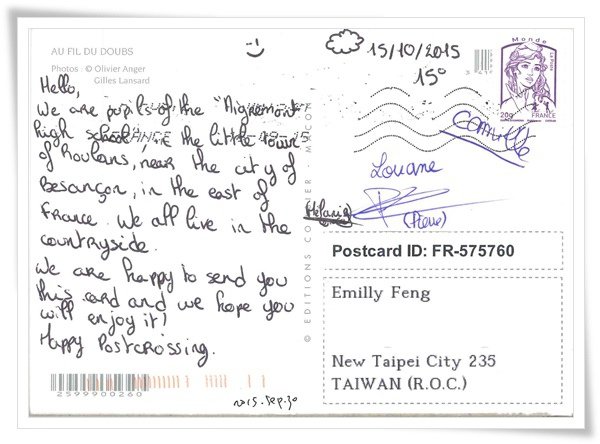 AU FIL DU DOUBS
Photos : © Olivier Anger
Gilles Lansard
15/10/2015
15°
Monde
20g FRANCE
Hello,
We are pupils of the "Aigremont"
high school, in the little town
of Roulans, near the city of
Besançon, in the east of
France. We all live in the
countryside.
We are happy to send you
this card and we hope you
will enjoy it!
Happy Postcrossing.
© EDITIONS
Camille
Louane
Mélanie
(Pierre)
Postcard ID: FR-575760
Emilly Feng
New Taipei City 235
TAIWAN (R.O.C.)
2599900260
2015.Sep.30